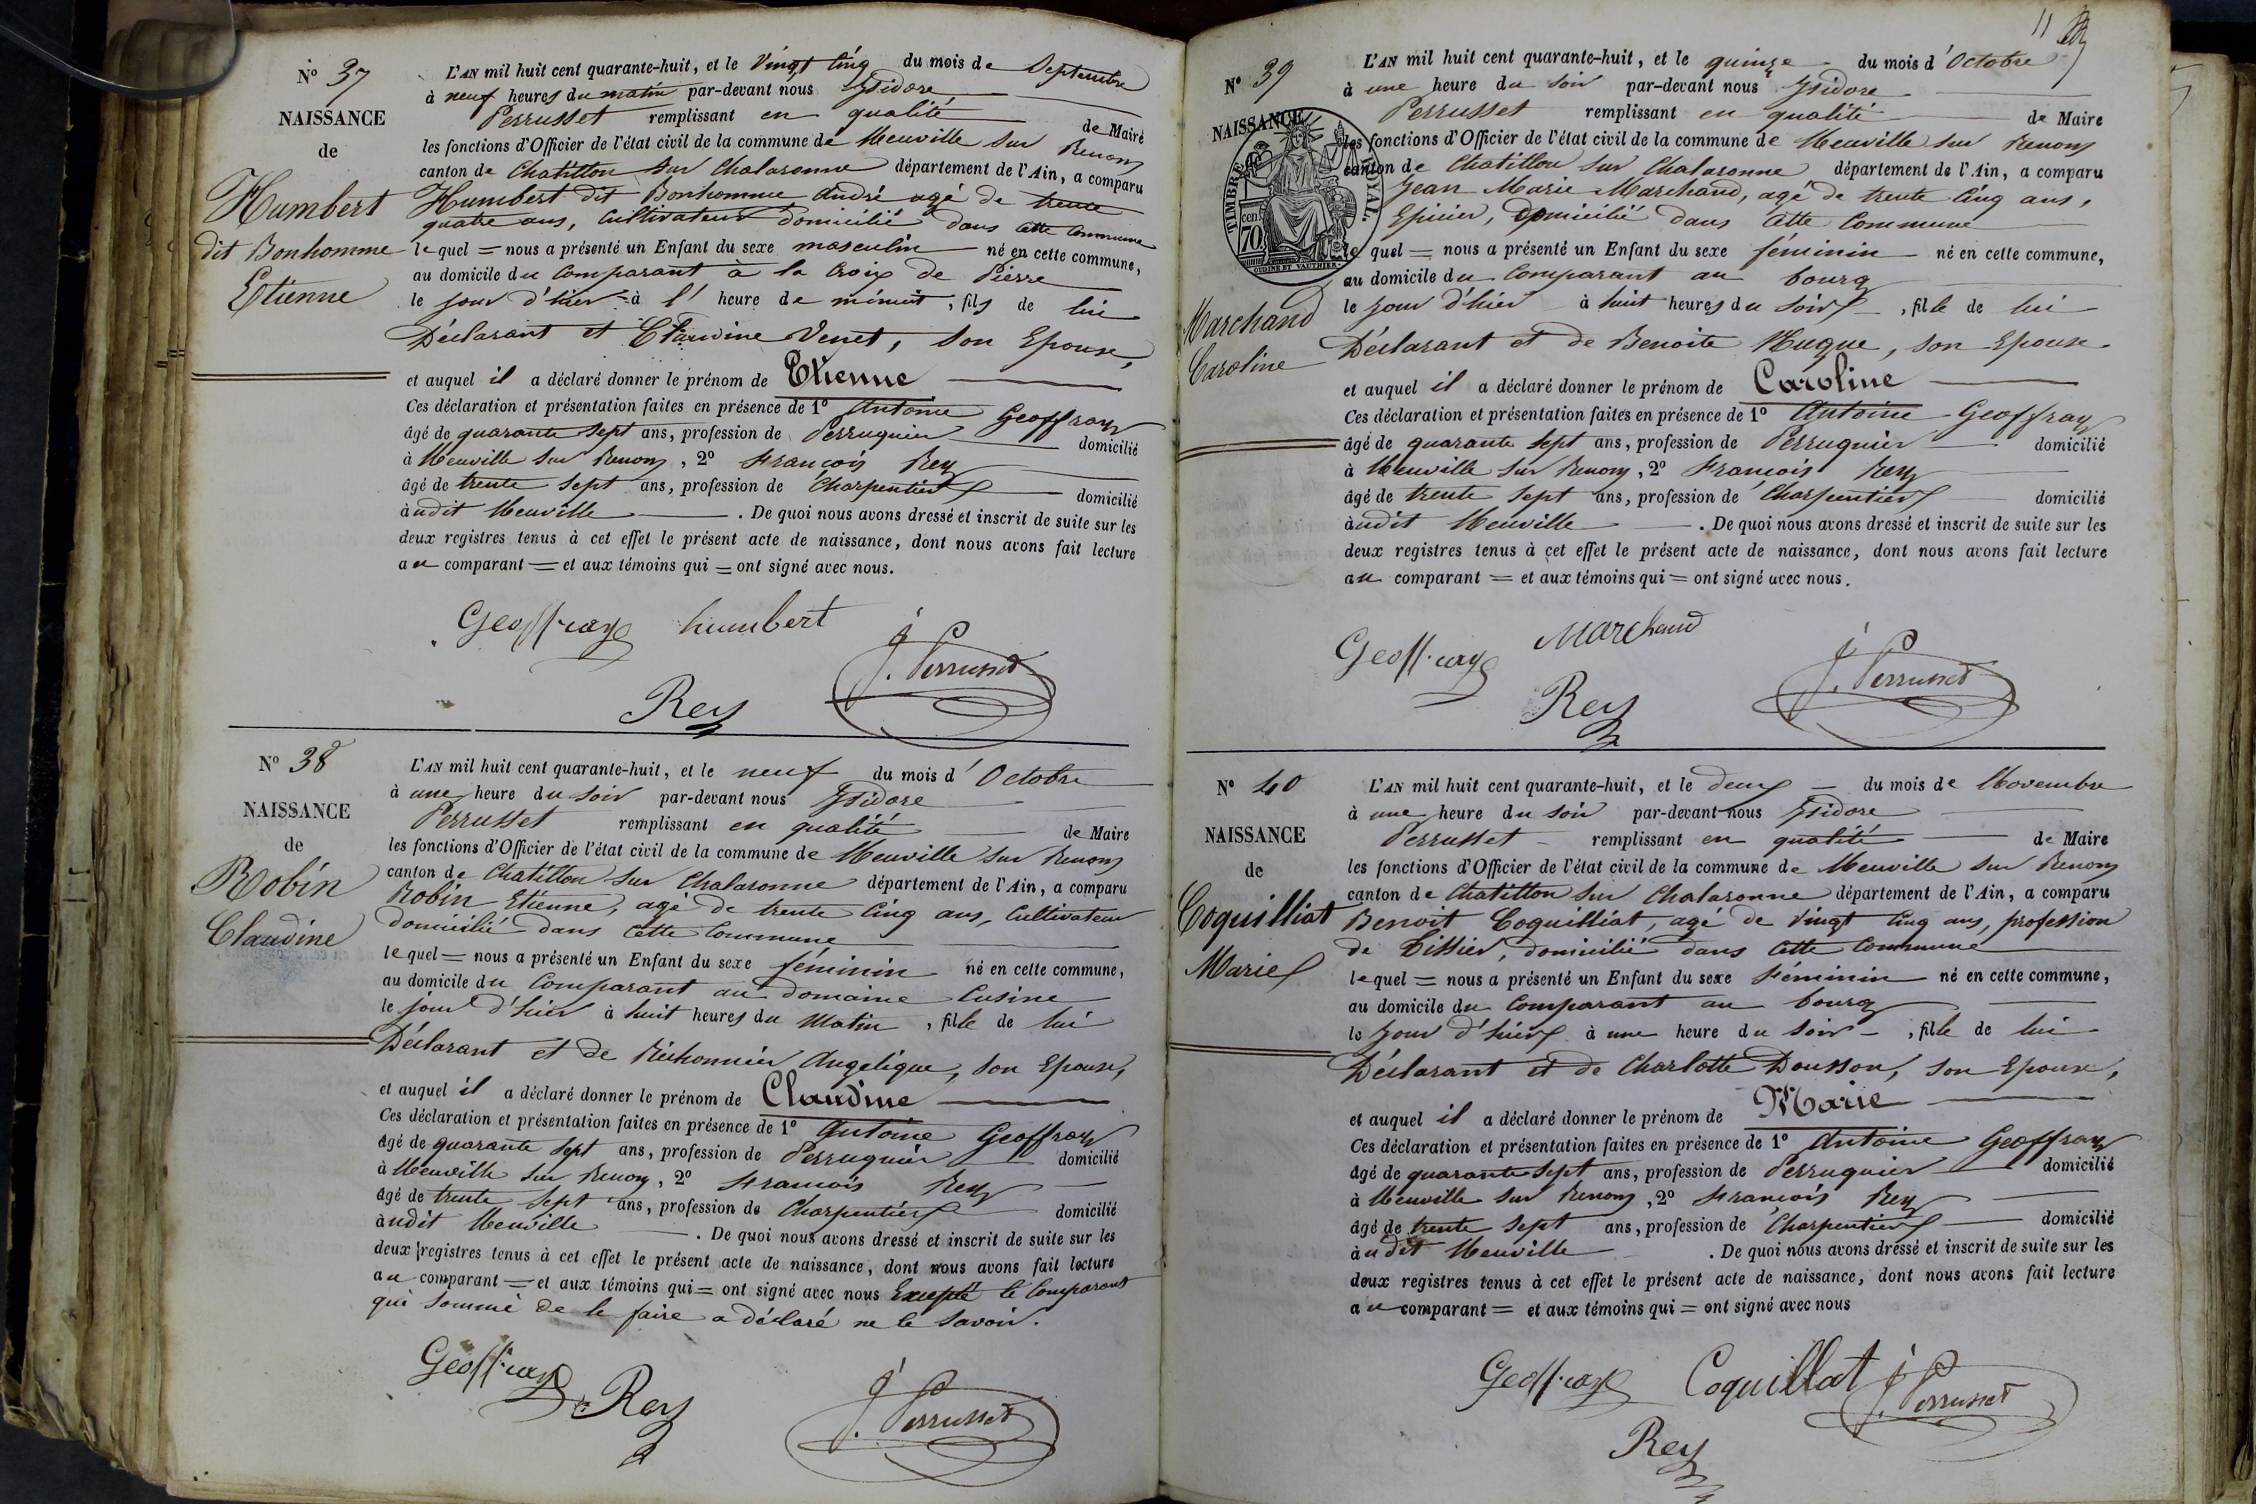 N° 37
NAISSANCE
de
Humbert
dit Bonhomme
Etienne
L'AN mil huit cent quarante-huit, et le vingt cinq du mois de Septembre
à neuf heures du matin par-devant nous Isidore
Perrusset remplissant en qualité de Maire
les fonctions d'Officier de l'état civil de la commune de Neuville sur Renom
canton de Chatillon sur Chalaronne département de l'Ain, a comparu
Humbert dit Bonhomme André agé de trente
quatre ans, cultivateur domicilié dans cette commune
lequel = nous a présenté un Enfant du sexe masculin né en cette commune,
au domicile du comparant à la Croix de Pierre
le jour d'hier à l' heure de minuit, fils de lui
Déclarant et Claudine Venet, son Epouse,
et auquel il a déclaré donner le prénom de Etienne
Ces déclaration et présentation faites en présence de 1° Antoine Geoffray
âgé de quarante sept ans, profession de Perruquier domicilié
à Neuville sur Renom, 2° François Rey
âgé de trente sept ans, profession de Charpentier domicilié
àudit Neuville . De quoi nous avons dressé et inscrit de suite sur les
deux registres tenus à cet effet le présent acte de naissance, dont nous avons fait lecture
au comparant = et aux témoins qui = ont signé avec nous.
Geoffray humbert
J. Perrusset
Rey
N° 38
NAISSANCE
de
Robin
Claudine
L'AN mil huit cent quarante-huit, et le neuf du mois d'Octobre
à une heure du soir par-devant nous Isidore
Perrusset remplissant en qualité de Maire
les fonctions d'Officier de l'état civil de la commune de Neuville sur Renom
canton de Chatillon sur Chalaronne département de l'Ain, a comparu
Robin Etienne, agé de trente cinq ans, cultivateur
domicilié dans cette commune
lequel = nous a présenté un Enfant du sexe féminin né en cette commune,
au domicile du comparant au domaine Cusine
le jour d'hier à huit heures du matin, fille de lui
Déclarant et de Angelique, son Epouse,
et auquel il a déclaré donner le prénom de Claudine
Ces déclaration et présentation faites en présence de 1° Antoine Geoffray
âgé de quarante sept ans, profession de Perruquier domicilié
à Neuville sur Renom, 2° François Rey
âgé de trente sept ans, profession de Charpentier domicilié
àudit Neuville . De quoi nous avons dressé et inscrit de suite sur les
deux registres tenus à cet effet le présent acte de naissance, dont nous avons fait lecture
au comparant = et aux témoins qui = ont signé avec nous Excepté le Comparant
qui sommé de le faire a déclaré ne le savoir.
Geoffray
Rey
J. Perrusset
11
N° 39
NAISSANCE
TIMBRE ROYAL.
cen. 70
OUDINÉ ET VAUTHIER.
Marchand
Caroline
L'AN mil huit cent quarante-huit, et le quinze du mois d'Octobre
à une heure du soir par-devant nous Isidore
Perrusset remplissant en qualité de Maire
les fonctions d'Officier de l'état civil de la commune de Neuville sur Renom
canton de Chatillon sur Chalaronne département de l'Ain, a comparu
Jean Marie Marchand, agé de trente cinq ans,
Epicier, domicilié dans cette commune
lequel = nous a présenté un Enfant du sexe féminin né en cette commune,
au domicile du comparant au bourg
le jour d'hier à huit heures du soir, fille de lui
Déclarant et de Benoite Hugue, son Epouse
et auquel il a déclaré donner le prénom de Caroline
Ces déclaration et présentation faites en présence de 1° Antoine Geoffray
âgé de quarante sept ans, profession de Perruquier domicilié
à Neuville sur Renom, 2° François Rey
âgé de trente sept ans, profession de Charpentier domicilié
àudit Neuville . De quoi nous avons dressé et inscrit de suite sur les
deux registres tenus à cet effet le présent acte de naissance, dont nous avons fait lecture
au comparant = et aux témoins qui = ont signé avec nous.
Geoffray Marchand
Rey
J. Perrusset
N° 40
NAISSANCE
de
Coquilliat
Marie
L'AN mil huit cent quarante-huit, et le deux du mois de Novembre
à une heure du soir par-devant nous Isidore
Perrusset remplissant en qualité de Maire
les fonctions d'Officier de l'état civil de la commune de Neuville sur Renom
canton de Chatillon sur Chalaronne département de l'Ain, a comparu
Benoit Coquilliat, agé de vingt cinq ans, profession
de Tissier, domicilié dans cette commune
lequel = nous a présenté un Enfant du sexe féminin né en cette commune,
au domicile du comparant au bourg
le jour d'hier à une heure du soir, fille de lui
Déclarant et de Charlotte Dousson, son Epouse,
et auquel il a déclaré donner le prénom de Marie
Ces déclaration et présentation faites en présence de 1° Antoine Geoffray
âgé de quarante sept ans, profession de Perruquier domicilié
à Neuville sur Renom, 2° François Rey
âgé de trente sept ans, profession de Charpentier domicilié
àudit Neuville . De quoi nous avons dressé et inscrit de suite sur les
deux registres tenus à cet effet le présent acte de naissance, dont nous avons fait lecture
au comparant = et aux témoins qui = ont signé avec nous
Geoffray Coquillat J. Perrusset
Rey